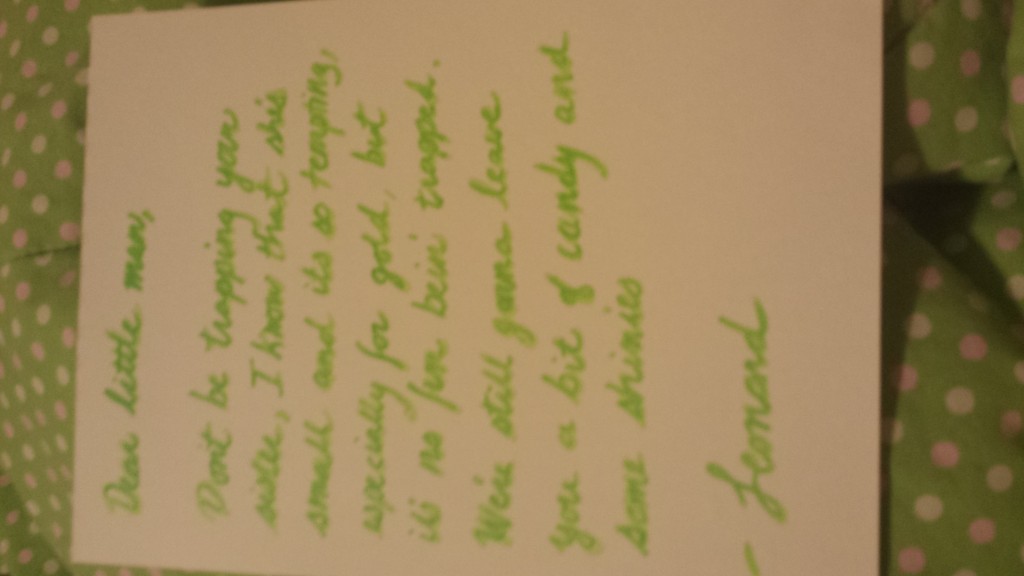 Dear little man,
Dont be trapping your
sister, I know that shis
small and its so temping,
especially for gold, but
its no fun bein trapped.
We're still gonna leave
you a bit of candy and
some shinies
- Leonard